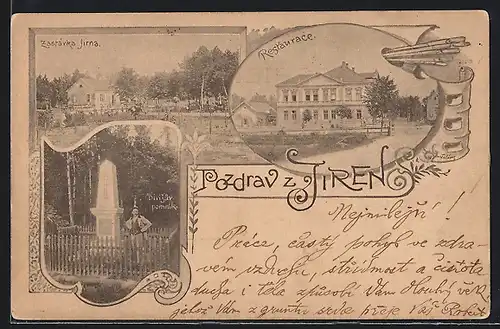 Zastávka Jirna.
Restaurace.
pomník.
Pozdrav z JIREN
Nejmilejší!
Práce, častý pohyb ve zdra-
vém vzduchu, střídmost a čistota
ducha i těla způsobí Vám dlouhý věk
jehož Vám z gruntu srdce přeje Váš